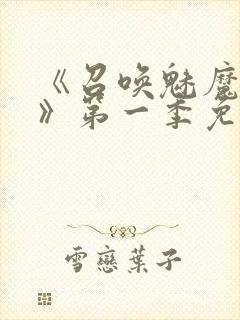 《召唤魅魔
》第一季免
雪戀葉子